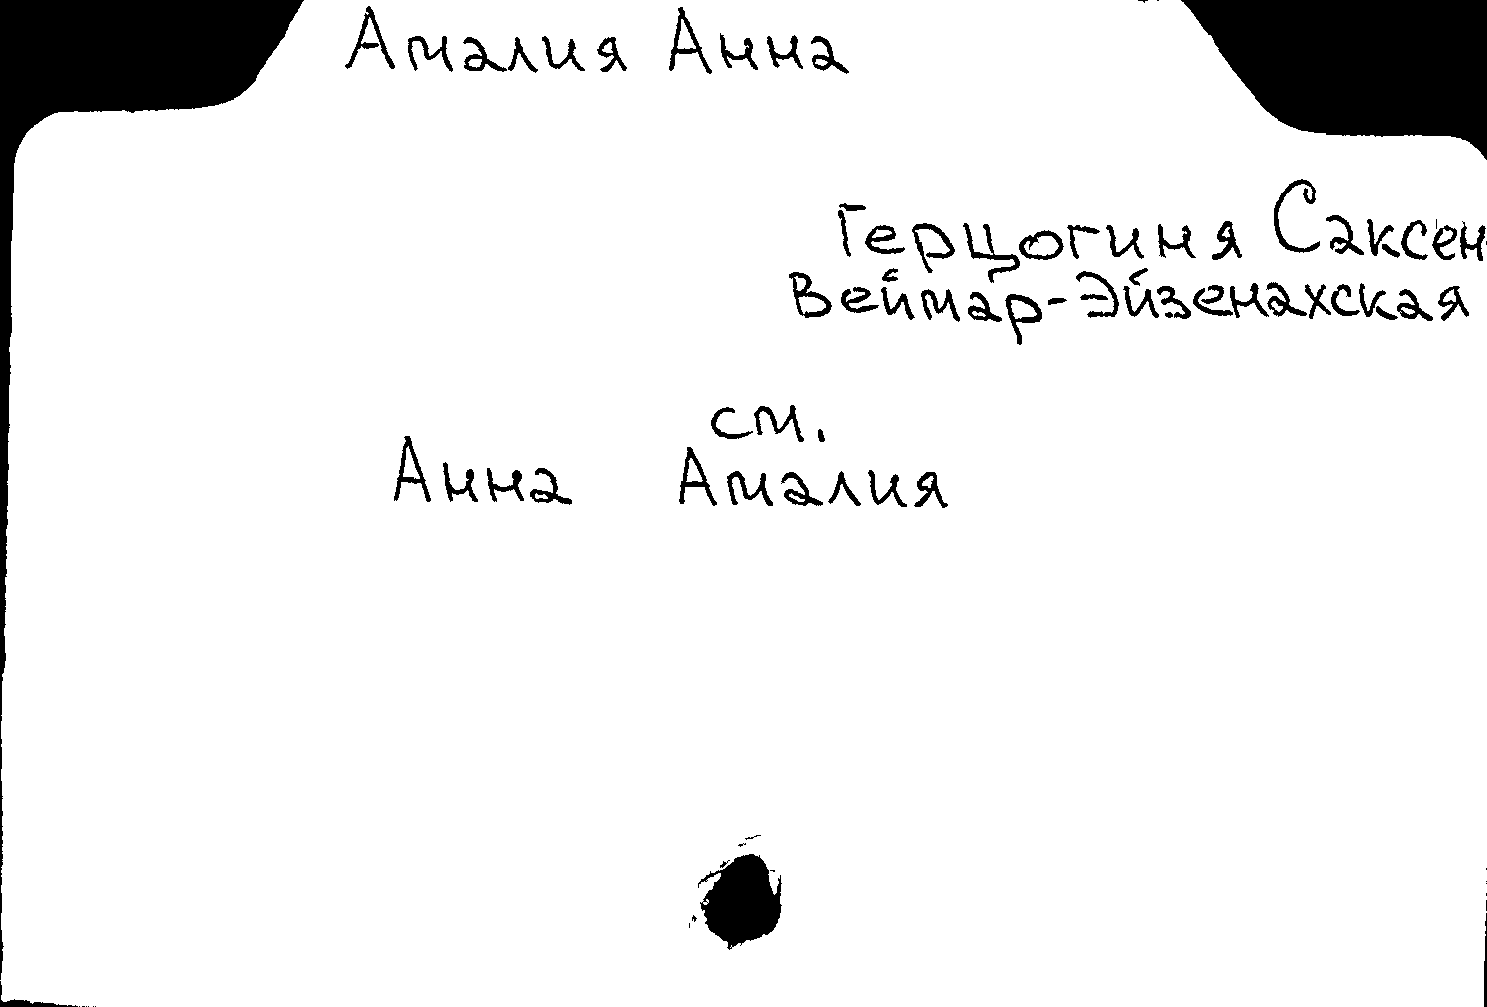 Амалия Анна
Герцогиня Саксен-
Веймар-Эйзенахская
см.
Анна Амалия